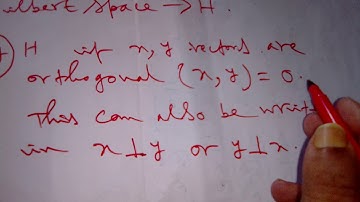 ilbert Space → H.
H if x, y vectors are
orthogonal (x, y) = 0.
This can also be writ
in x⊥y or y⊥x.